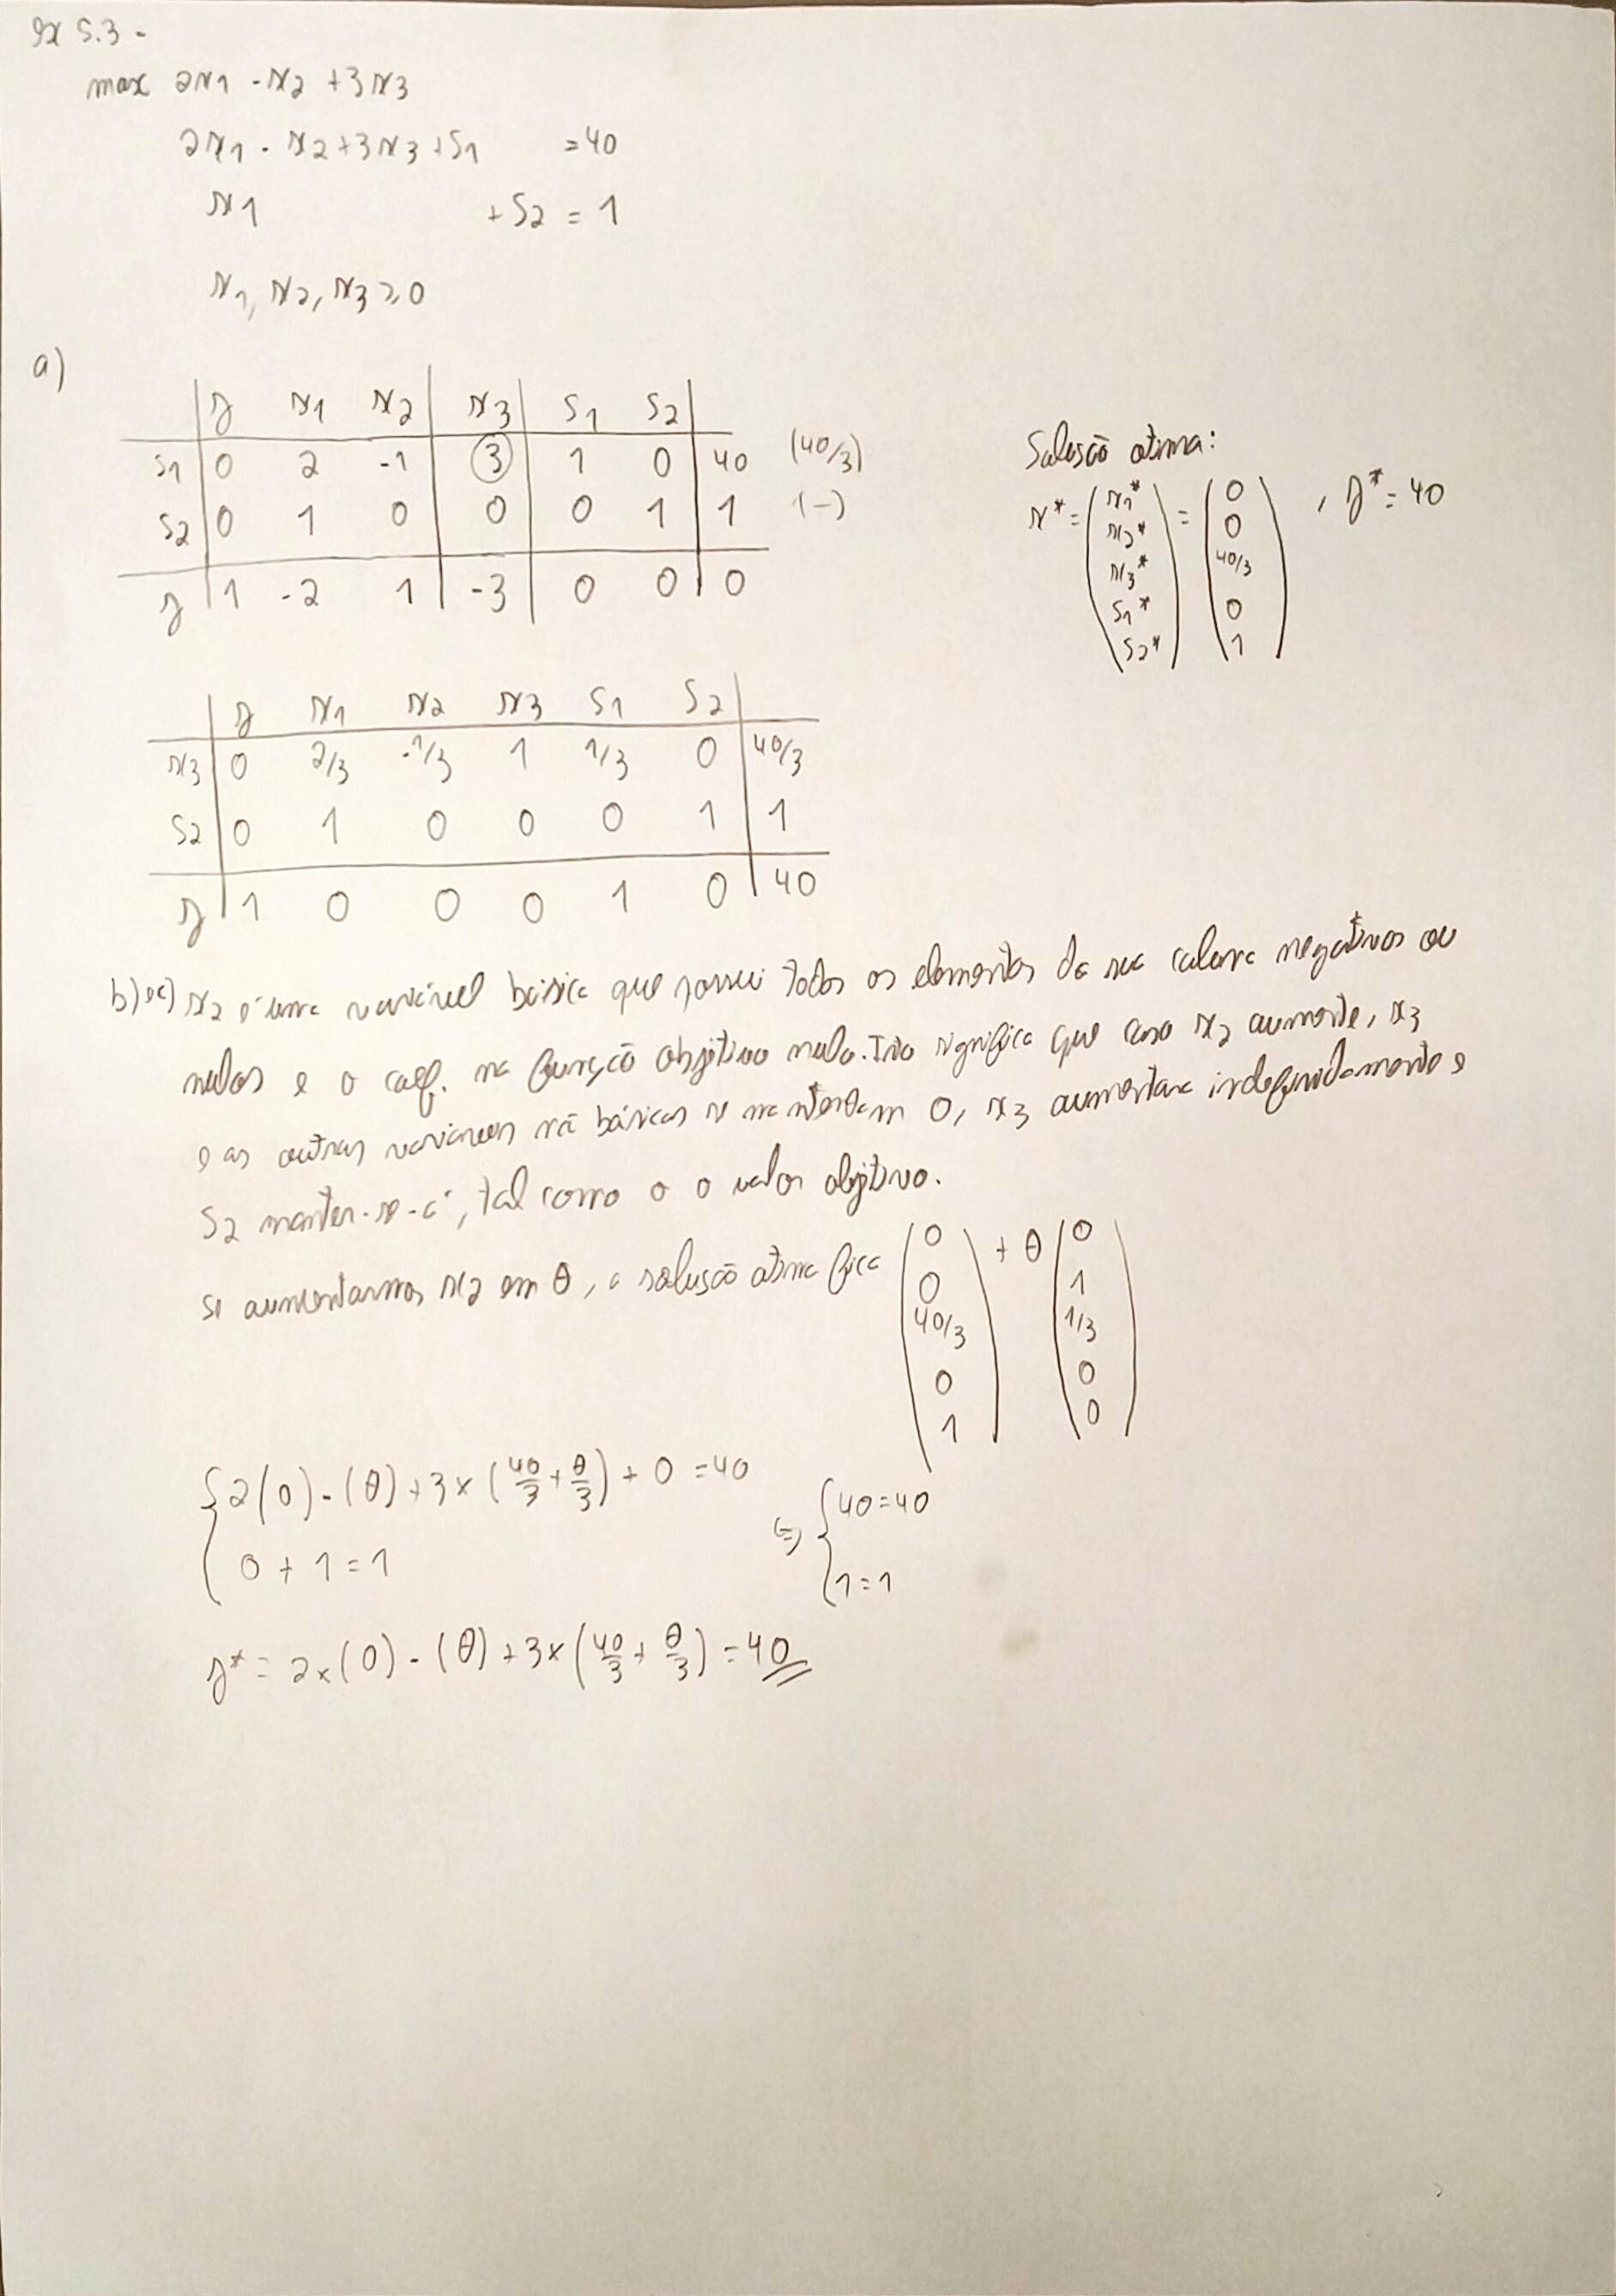 ex 5.3 -
max 2x1 - x2 + 3x3
2x1 - x2 + 3x3 + S1 = 40
x1 + S2 = 1
x1, x2, x3 ≥ 0
a)
z x1 x2 x3 S1 S2
S1 0 2 -1 3 1 0 40 (40/3)
S2 0 1 0 0 0 1 1 (-)
z 1 -2 1 -3 0 0 0
Solução otima:
x* = (x1* x2* x3* S1* S2*) = (0 0 40/3 0 1), z* = 40
z x1 x2 x3 S1 S2
x3 0 2/3 -1/3 1 1/3 0 40/3
S2 0 1 0 0 0 1 1
z 1 0 0 0 1 0 40
b) e c) x2 é uma variável básica que possui todos os elementos da sua coluna negativos ou
nulos e o coef. na função objetivo nulo. Isto significa que caso x2 aumente, x3
e as outras variaveis nã básicas se mantenham 0, x3 aumentara indefinidamente e
S2 manter-se-á, tal como o o valor objetivo.
Se aumentarmos x2 em θ, a solução otima fica (0 0 40/3 0 1) + θ (0 1 1/3 0 0)
{ 2(0) - (θ) + 3 × (40/3 + θ/3) + 0 = 40
0 + 1 = 1
⇔ { 40 = 40
1 = 1
z* = 2×(0) - (θ) + 3×(40/3 + θ/3) = 40